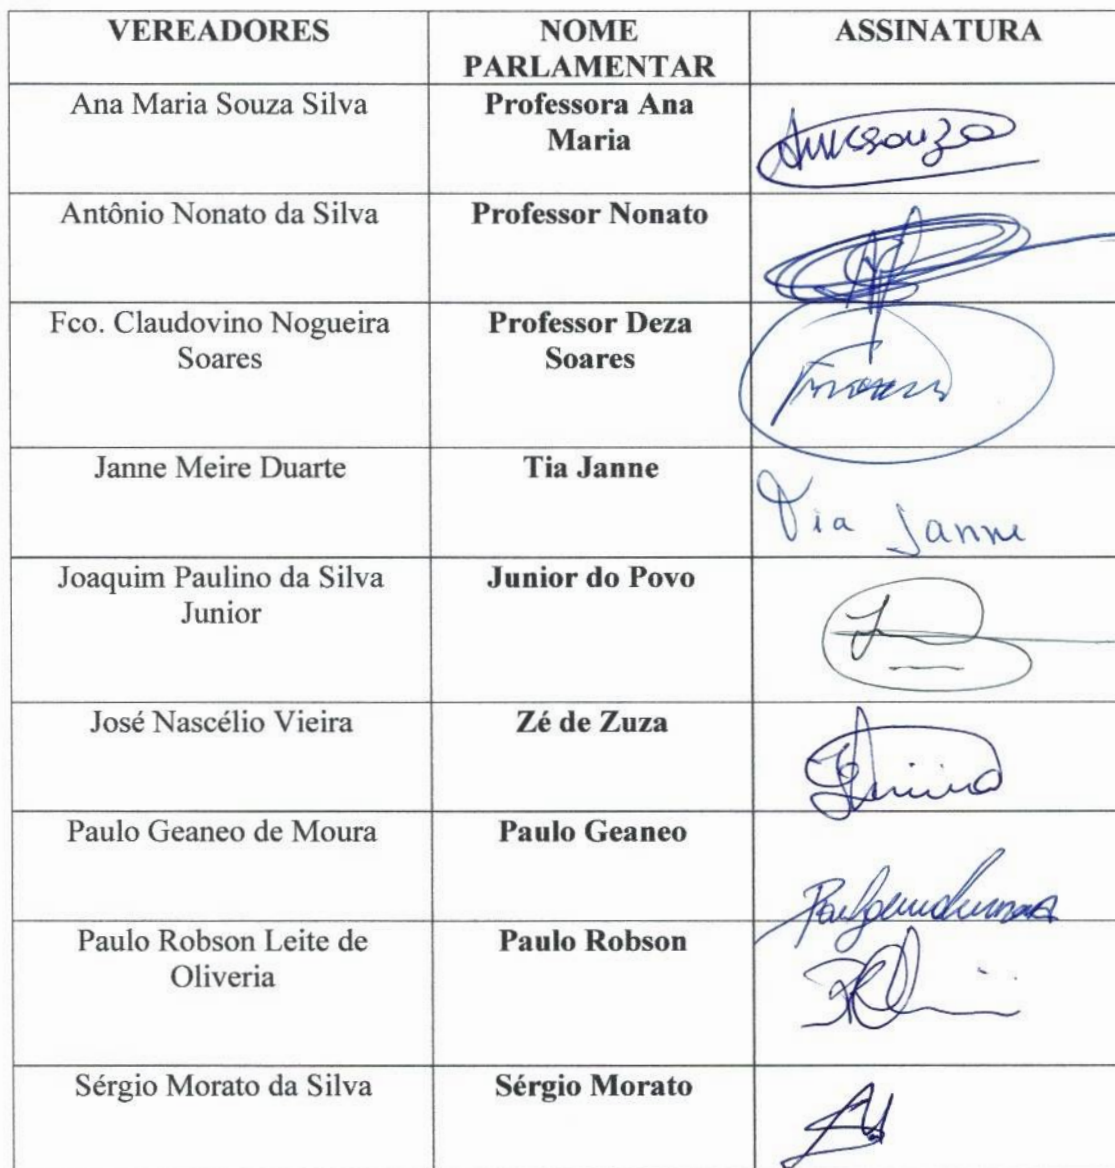 VEREADORES
NOME
PARLAMENTAR
ASSINATURA
Ana Maria Souza Silva
Professora Ana
Maria
Antônio Nonato da Silva
Professor Nonato
Fco. Claudovino Nogueira
Soares
Professor Deza
Soares
Janne Meire Duarte
Tia Janne
Tia Janne
Joaquim Paulino da Silva
Junior
Junior do Povo
José Nascélio Vieira
Zé de Zuza
Paulo Geaneo de Moura
Paulo Geaneo
Paulo Robson Leite de
Oliveria
Paulo Robson
Sérgio Morato da Silva
Sérgio Morato